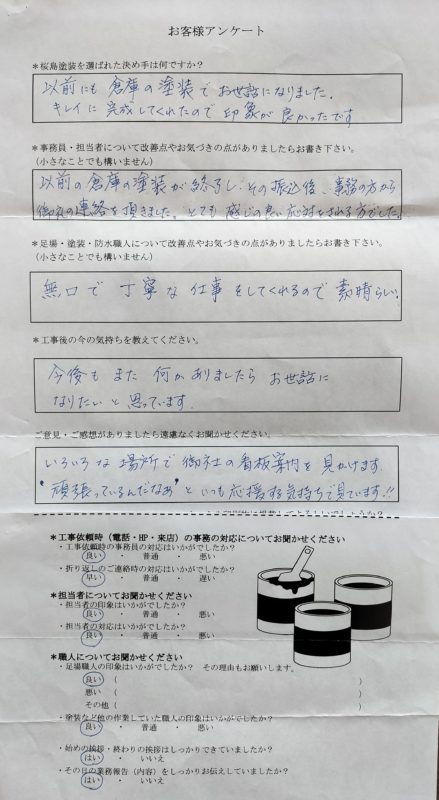 お客様アンケート
＊桜島塗装を選ばれた決め手は何ですか？
以前にも倉庫の塗装でお世話になりました。
キレイに完成してくれたので印象が良かったです
＊事務員・担当者について改善点やお気づきの点がありましたらお書き下さい。
（小さなことでも構いません）
以前の倉庫の塗装が終了し、その振込後、事務の方から
御礼の連絡を頂きました。とても感じの良い応対をされる方でした。
＊足場・塗装・防水職人について改善点やお気づきの点がありましたらお書き下さい。
（小さなことでも構いません）
無口で丁寧な仕事をしてくれるので素晴らしい！
＊工事後の今の気持ちを教えてください。
今後もまた何かありましたらお世話に
なりたいと思っています。
ご意見・ご感想がありましたら遠慮なくお聞かせください。
いろいろな場所で御社の看板案内を見かけます。
"頑張っているんだなぁ"といつも応援する気持ちで見ています!!
＊工事依頼時（電話・HP・来店）の事務の対応についてお聞かせください
・工事依頼時の事務員の対応はいかがでしたか？
良い ・ 普通 ・ 悪い
・折り返しのご連絡時の対応はいかがでしたか？
早い ・ 普通 ・ 遅い
＊担当者についてお聞かせください
・担当者の印象はいかがでしたか？
良い ・ 普通 ・ 悪い
・担当者の対応はいかがでしたか？
良い ・ 普通 ・ 悪い
＊職人についてお聞かせください
・足場職人の印象はいかがでしたか？ その理由もお願いします。
良い （ ）
悪い （ ）
その他（ ）
・塗装など他の作業していた職人の印象はいかがでしたか？
良い ・ 普通 ・ 悪い
・始めの挨拶・終わりの挨拶はしっかりできていましたか？
はい ・ いいえ
・その日の業務報告（内容）をしっかりお伝えしていましたか？
はい ・ いいえ